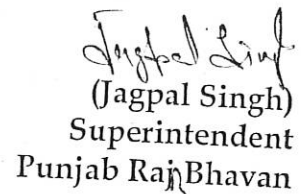 Jagpal Singh
(Jagpal Singh)
Superintendent
Punjab Raj Bhavan